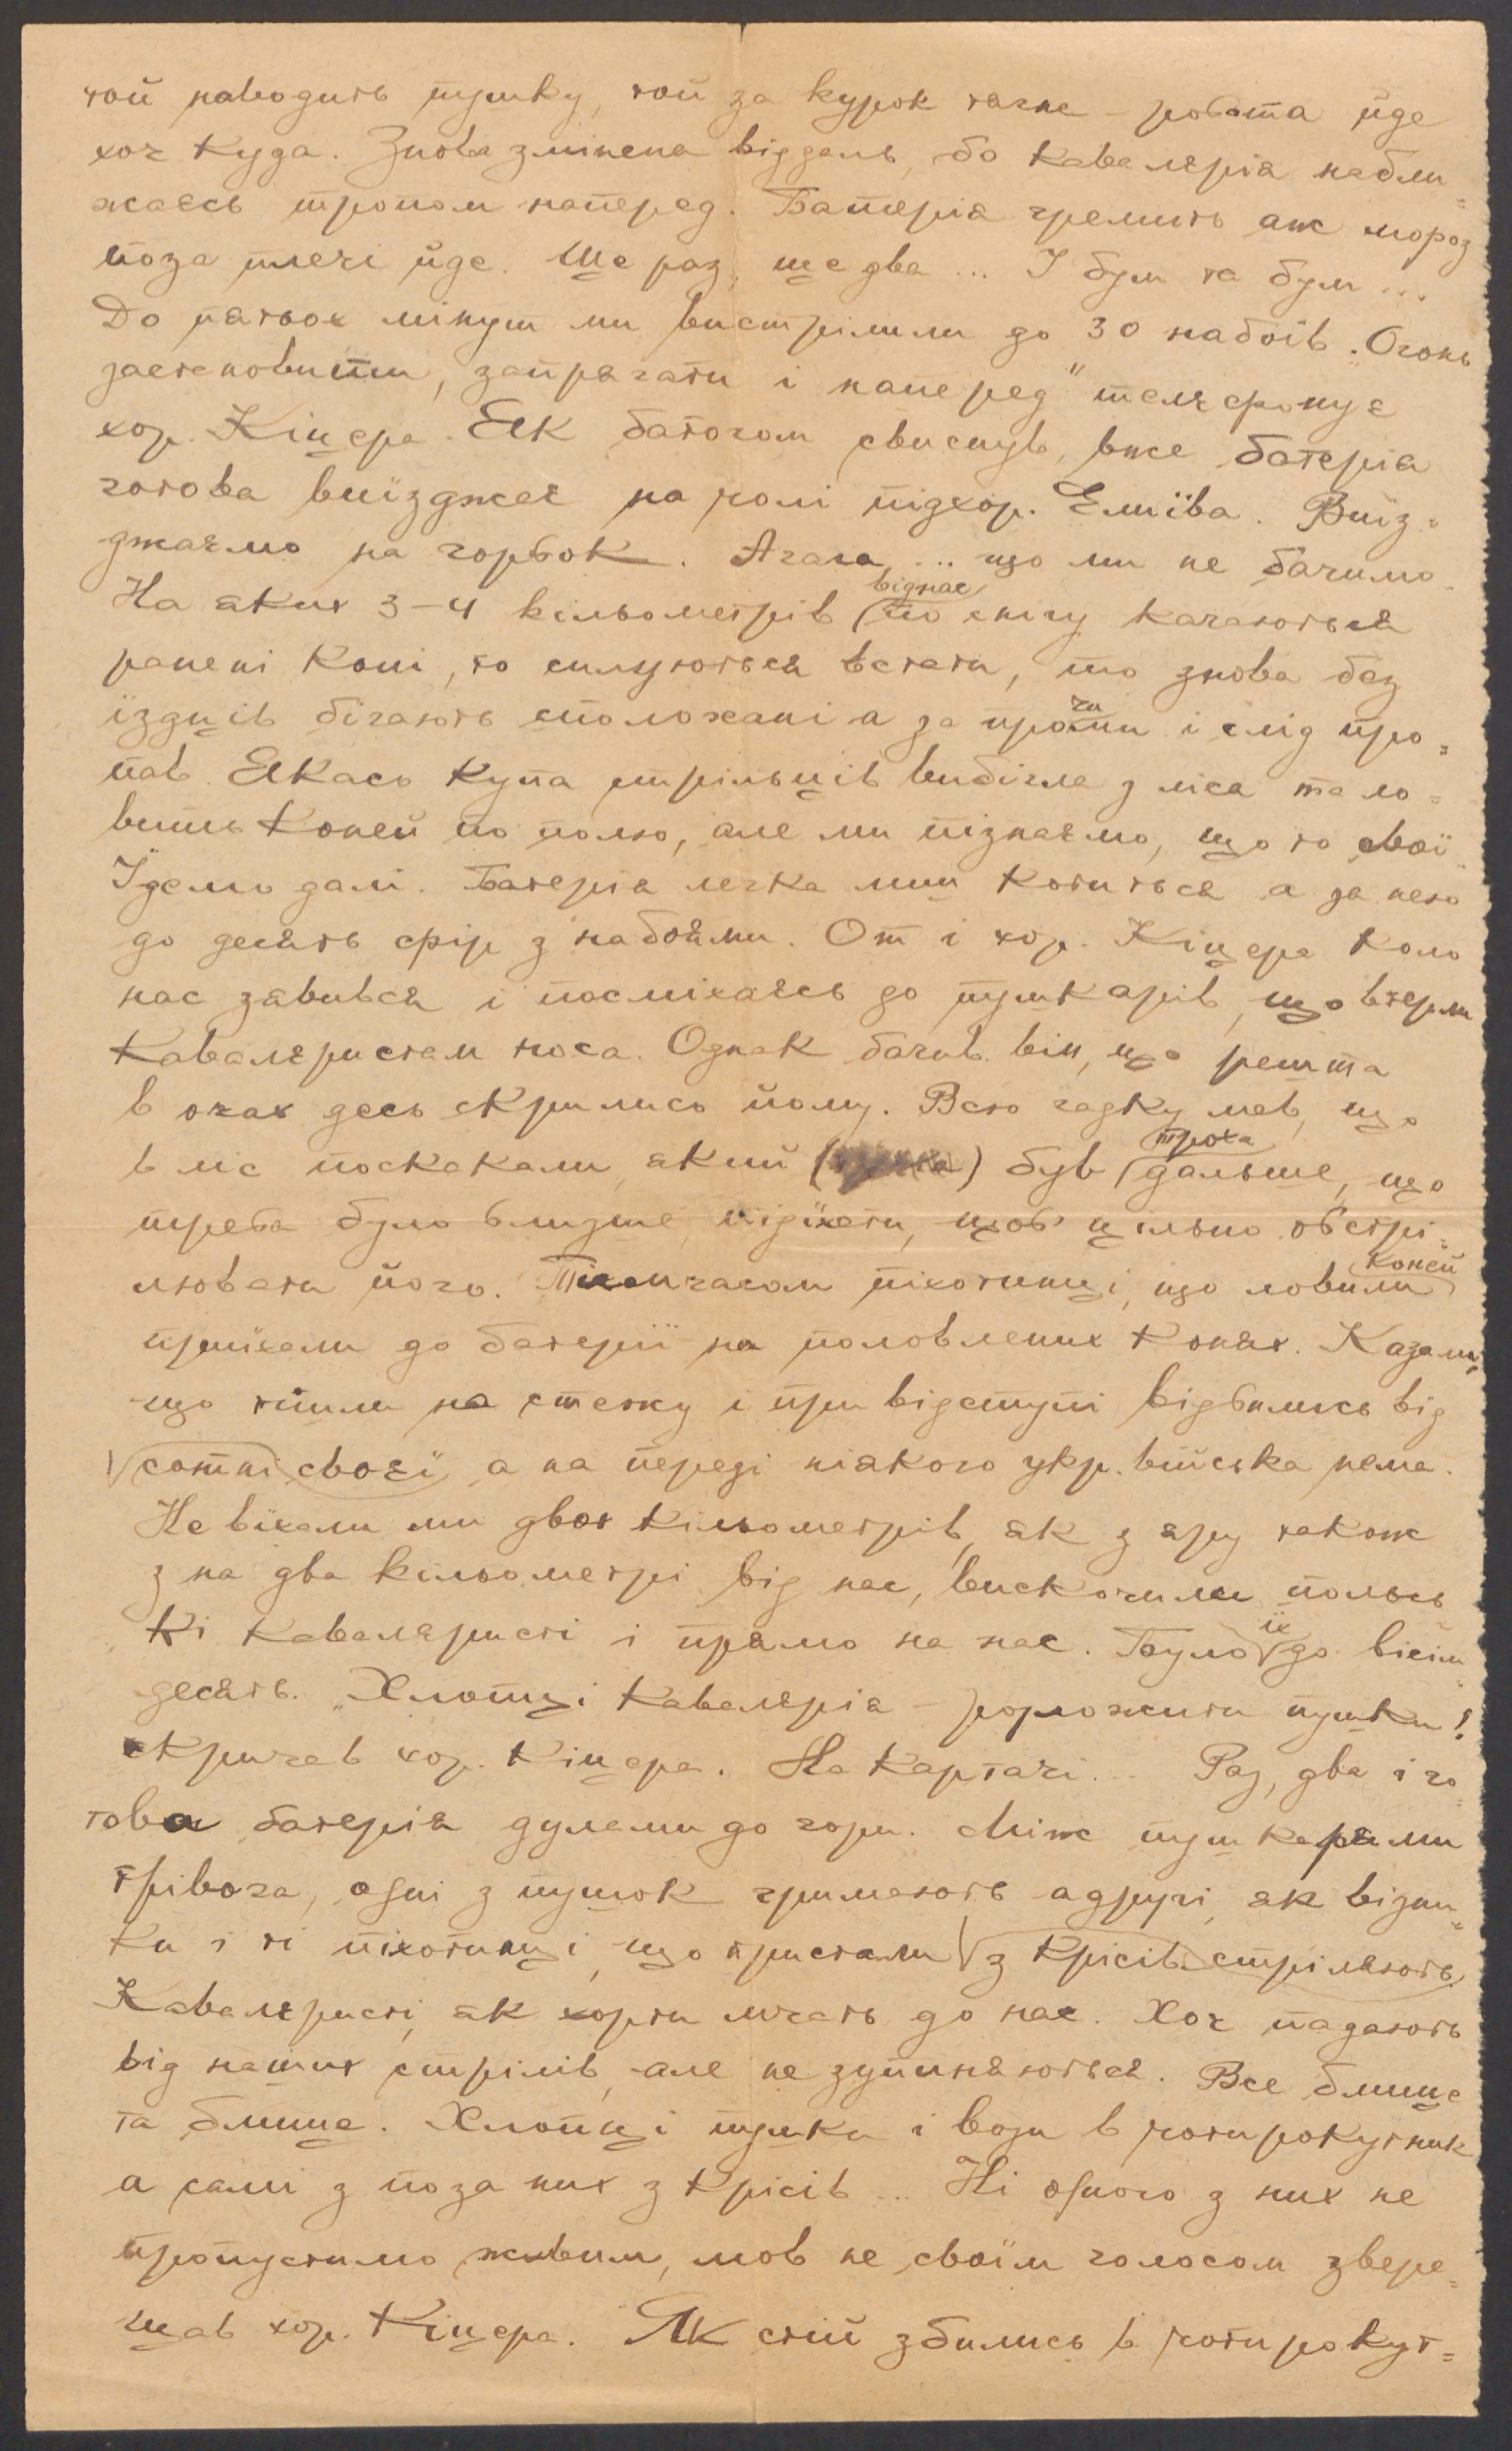 той наводить пушку, той за курок тягне – робота йде
хоч куда. Знова змінена віддаль, бо кавалєрія набли=
жаєсь тропом наперед. Батерія гремить аж мороз
поза плечі йде. Ще раз, ще два ... І бум та бум ...
До пятьох мінут ми вистрілили до 30 набоїв. „Огонь
застановити, запрягати і наперед" телєфонує
хор. Кіцера. Як батогом свиснув, вже батерія
готова виїзджає на чолі підхор. Еліїва. Виїз=
джаємо на горбок. Агага ... що ми не бачимо.
На яких 3–4 кільометрів (від нас) по снігу качаються
ранені коні, то силуються встати, то знова без
їздців бігають сполохані а за прочими і слід про=
пав. Якась купа стрільців вибігла з ліса та ло=
вить коней по полю, але ми пізнаємо, що то свої.
Їдемо далі. Батерія легка мии котиться а за нею
до десять фір з набоями. От і хор. Кіцера коло
нас зявився і посміхаєсь до пушкарів, що втерли
кавалєристам носа. Однак бачив він, що решта
в очах десь скрились йому. Всю гадку мав, що
в ліс поскакали, який () був (троха) дальше, що
треба було близше підїхати, щоб цільно обстрі=
лювати його. Тимчасом піхотинці, що ловили (коней)
приїхали до батерії на половлених конях. Казали,
що йшли на стежку і при відступі відбились від
сотні своєї, а на переді ніякого укр. війська нема.
Не вїхали ми двох кільометрів, як з яру також
з на два кільометрі від нас, вискочили польсь
кі кавалєристі і прямо на нас. Було їх до вісім
десять. „Хлопці кавалєрія – розложити пушки!
скричав хор. Кіцера. На картачі... Раз, два і го=
това батерія дулами до гори. Між пушкарями
трівога, одні з пушок гримають а другі, як візни=
ки і ті піхотинці, що пристали з крісів стріляють.
Кавалєристі, як хорти мчать до нас. Хоч падають
від наших стрілів, але не зупиняються. Все блище
та блище. Хлопці пушки і вози в чотирокутник
а самі з поза них з крісів ... Ні одного з них не
пропустимо живим, мов не своїм голосом звере=
щав хор. Кіцера. Як стій збились в чотирокут=